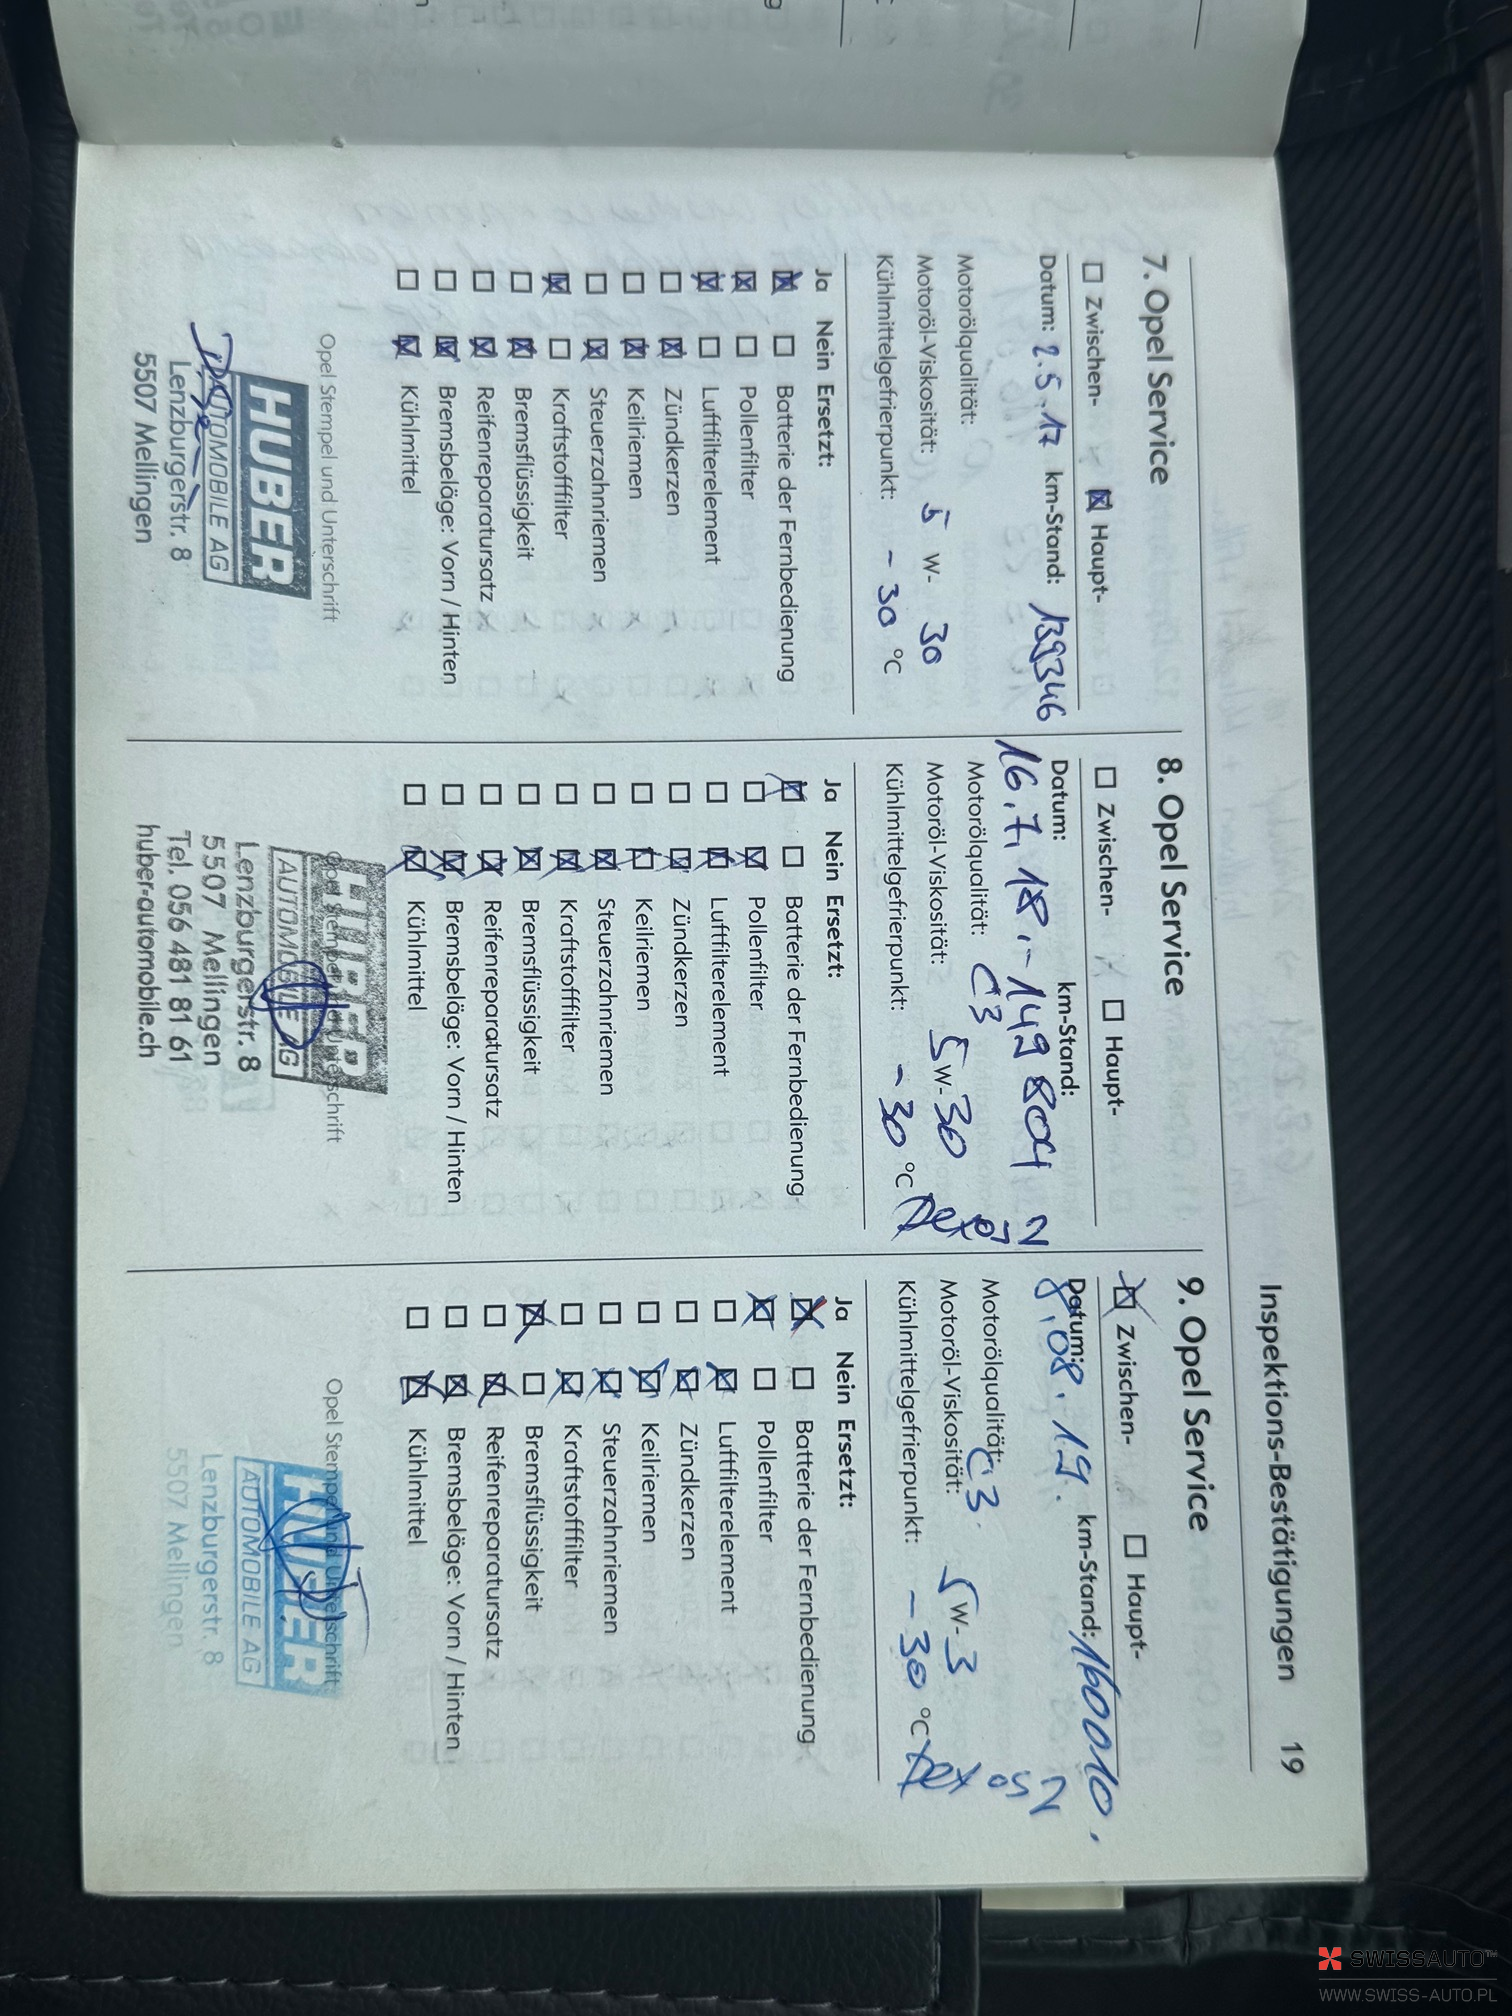 Inspektions-Bestätigungen 19
7. Opel Service
Zwischen- Haupt-
Datum: 2.5.17 km-Stand: 139346
Motorölqualität:
Motoröl-Viskosität: 5 W- 30
Kühlmittelgefrierpunkt: - 30 °C
Ja Nein Ersetzt:
Batterie der Fernbedienung
Pollenfilter
Luftfilterelement
Zündkerzen
Keilriemen
Steuerzahnriemen
Kraftstofffilter
Bremsflüssigkeit
Reifenreparatursatz
Bremsbeläge: Vorn / Hinten
Kühlmittel
Opel Stempel und Unterschrift
HUBER
AUTOMOBILE AG
Lenzburgerstr. 8
5507 Mellingen
8. Opel Service
Zwischen- Haupt-
Datum: km-Stand:
16.7.18.- 149 804
Motorölqualität: C3
Motoröl-Viskosität: 5 W- 30
Kühlmittelgefrierpunkt: - 30 °C Dexos 2
Ja Nein Ersetzt:
Batterie der Fernbedienung
Pollenfilter
Luftfilterelement
Zündkerzen
Keilriemen
Steuerzahnriemen
Kraftstofffilter
Bremsflüssigkeit
Reifenreparatursatz
Bremsbeläge: Vorn / Hinten
Kühlmittel
Opel Stempel und Unterschrift
HUBER
AUTOMOBILE AG
Lenzburgerstr. 8
5507 Mellingen
Tel. 056 481 81 61
huber-automobile.ch
9. Opel Service
Zwischen- Haupt-
Datum: 8.08.19. km-Stand: 160010.
Motorölqualität: C3
Motoröl-Viskosität: 5 W- 3
Kühlmittelgefrierpunkt: - 30 °C Dexos 2
Ja Nein Ersetzt:
Batterie der Fernbedienung
Pollenfilter
Luftfilterelement
Zündkerzen
Keilriemen
Steuerzahnriemen
Kraftstofffilter
Bremsflüssigkeit
Reifenreparatursatz
Bremsbeläge: Vorn / Hinten
Kühlmittel
Opel Stempel und Unterschrift
HUBER
AUTOMOBILE AG
Lenzburgerstr. 8
5507 Mellingen
SWISSAUTO™
WWW.SWISS-AUTO.PL